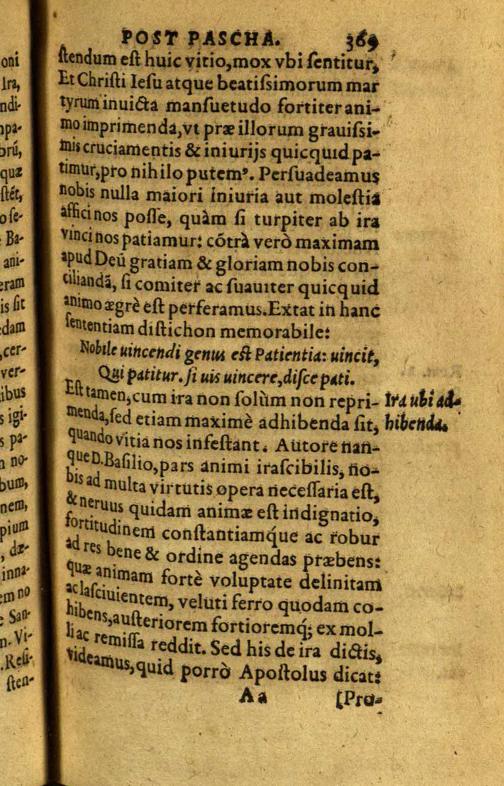 POST PASCHA. 369
ſtendum eſt huic vitio, mox vbi ſentitur,
Et Chriſti Ieſu atque beatiſsimorum mar
tyrum inuicta manſuetudo fortiter ani-
mo imprimenda, vt præ illorum grauiſsi-
mis cruciamentis & iniurijs quicquid pa-
timur, pro nihilo putemꝰ. Perſuadeamus
nobis nulla maiori iniuria aut moleſtia
affici nos poſſe, quàm ſi turpiter ab ira
vinci nos patiamur: cōtrà verò maximam
apud Deū gratiam & gloriam nobis con-
ciliandā, ſi comiter ac ſuauiter quicquid
animo ægrè eſt perferamus. Extat in hanc
ſententiam diſtichon memorabile:
Nobile uincendi genus eſt Patientia: uincit,
Qui patitur. ſi uis uincere, diſce pati.
Eſt tamen, cum ira non ſolùm non repri-
menda, ſed etiam maximè adhibenda ſit,
Ira ubi ad-
hibenda.
quando vitia nos infeſtant. Autore nan-
que D. Baſilio, pars animi iraſcibilis, no-
bis ad multa virtutis opera neceſſaria eſt,
& neruus quidam animæ eſt indignatio,
fortitudinem conſtantiamque ac robur
ad res bene & ordine agendas præbens:
quæ animam fortè voluptate delinitam
ac laſciuientem, veluti ferro quodam co-
hibens, auſteriorem fortioremq; ex mol-
li ac remiſſa reddit. Sed his de ira dictis,
videamus, quid porrò Apoſtolus dicat:
Aa [Pro-
oni
Ira,
ndi-
mpa-
brū,
quæ
ſtét,
o ſe-
Ba-
ani-
eram
is ſit
dam
,cer-
ver-
ibus
s igi-
s pa-
n no-
bum,
nem,
pium
, dæ-
inna-
em no
e San-
n. Vi-
. Reſi-
ſten-